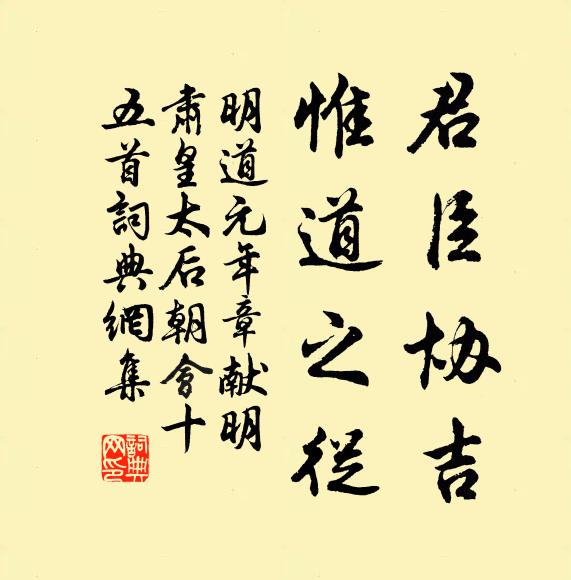 君臣协吉
惟道之從
明道元年章献明
肅皇太后朝會十
五首詞典網集
詞典网印